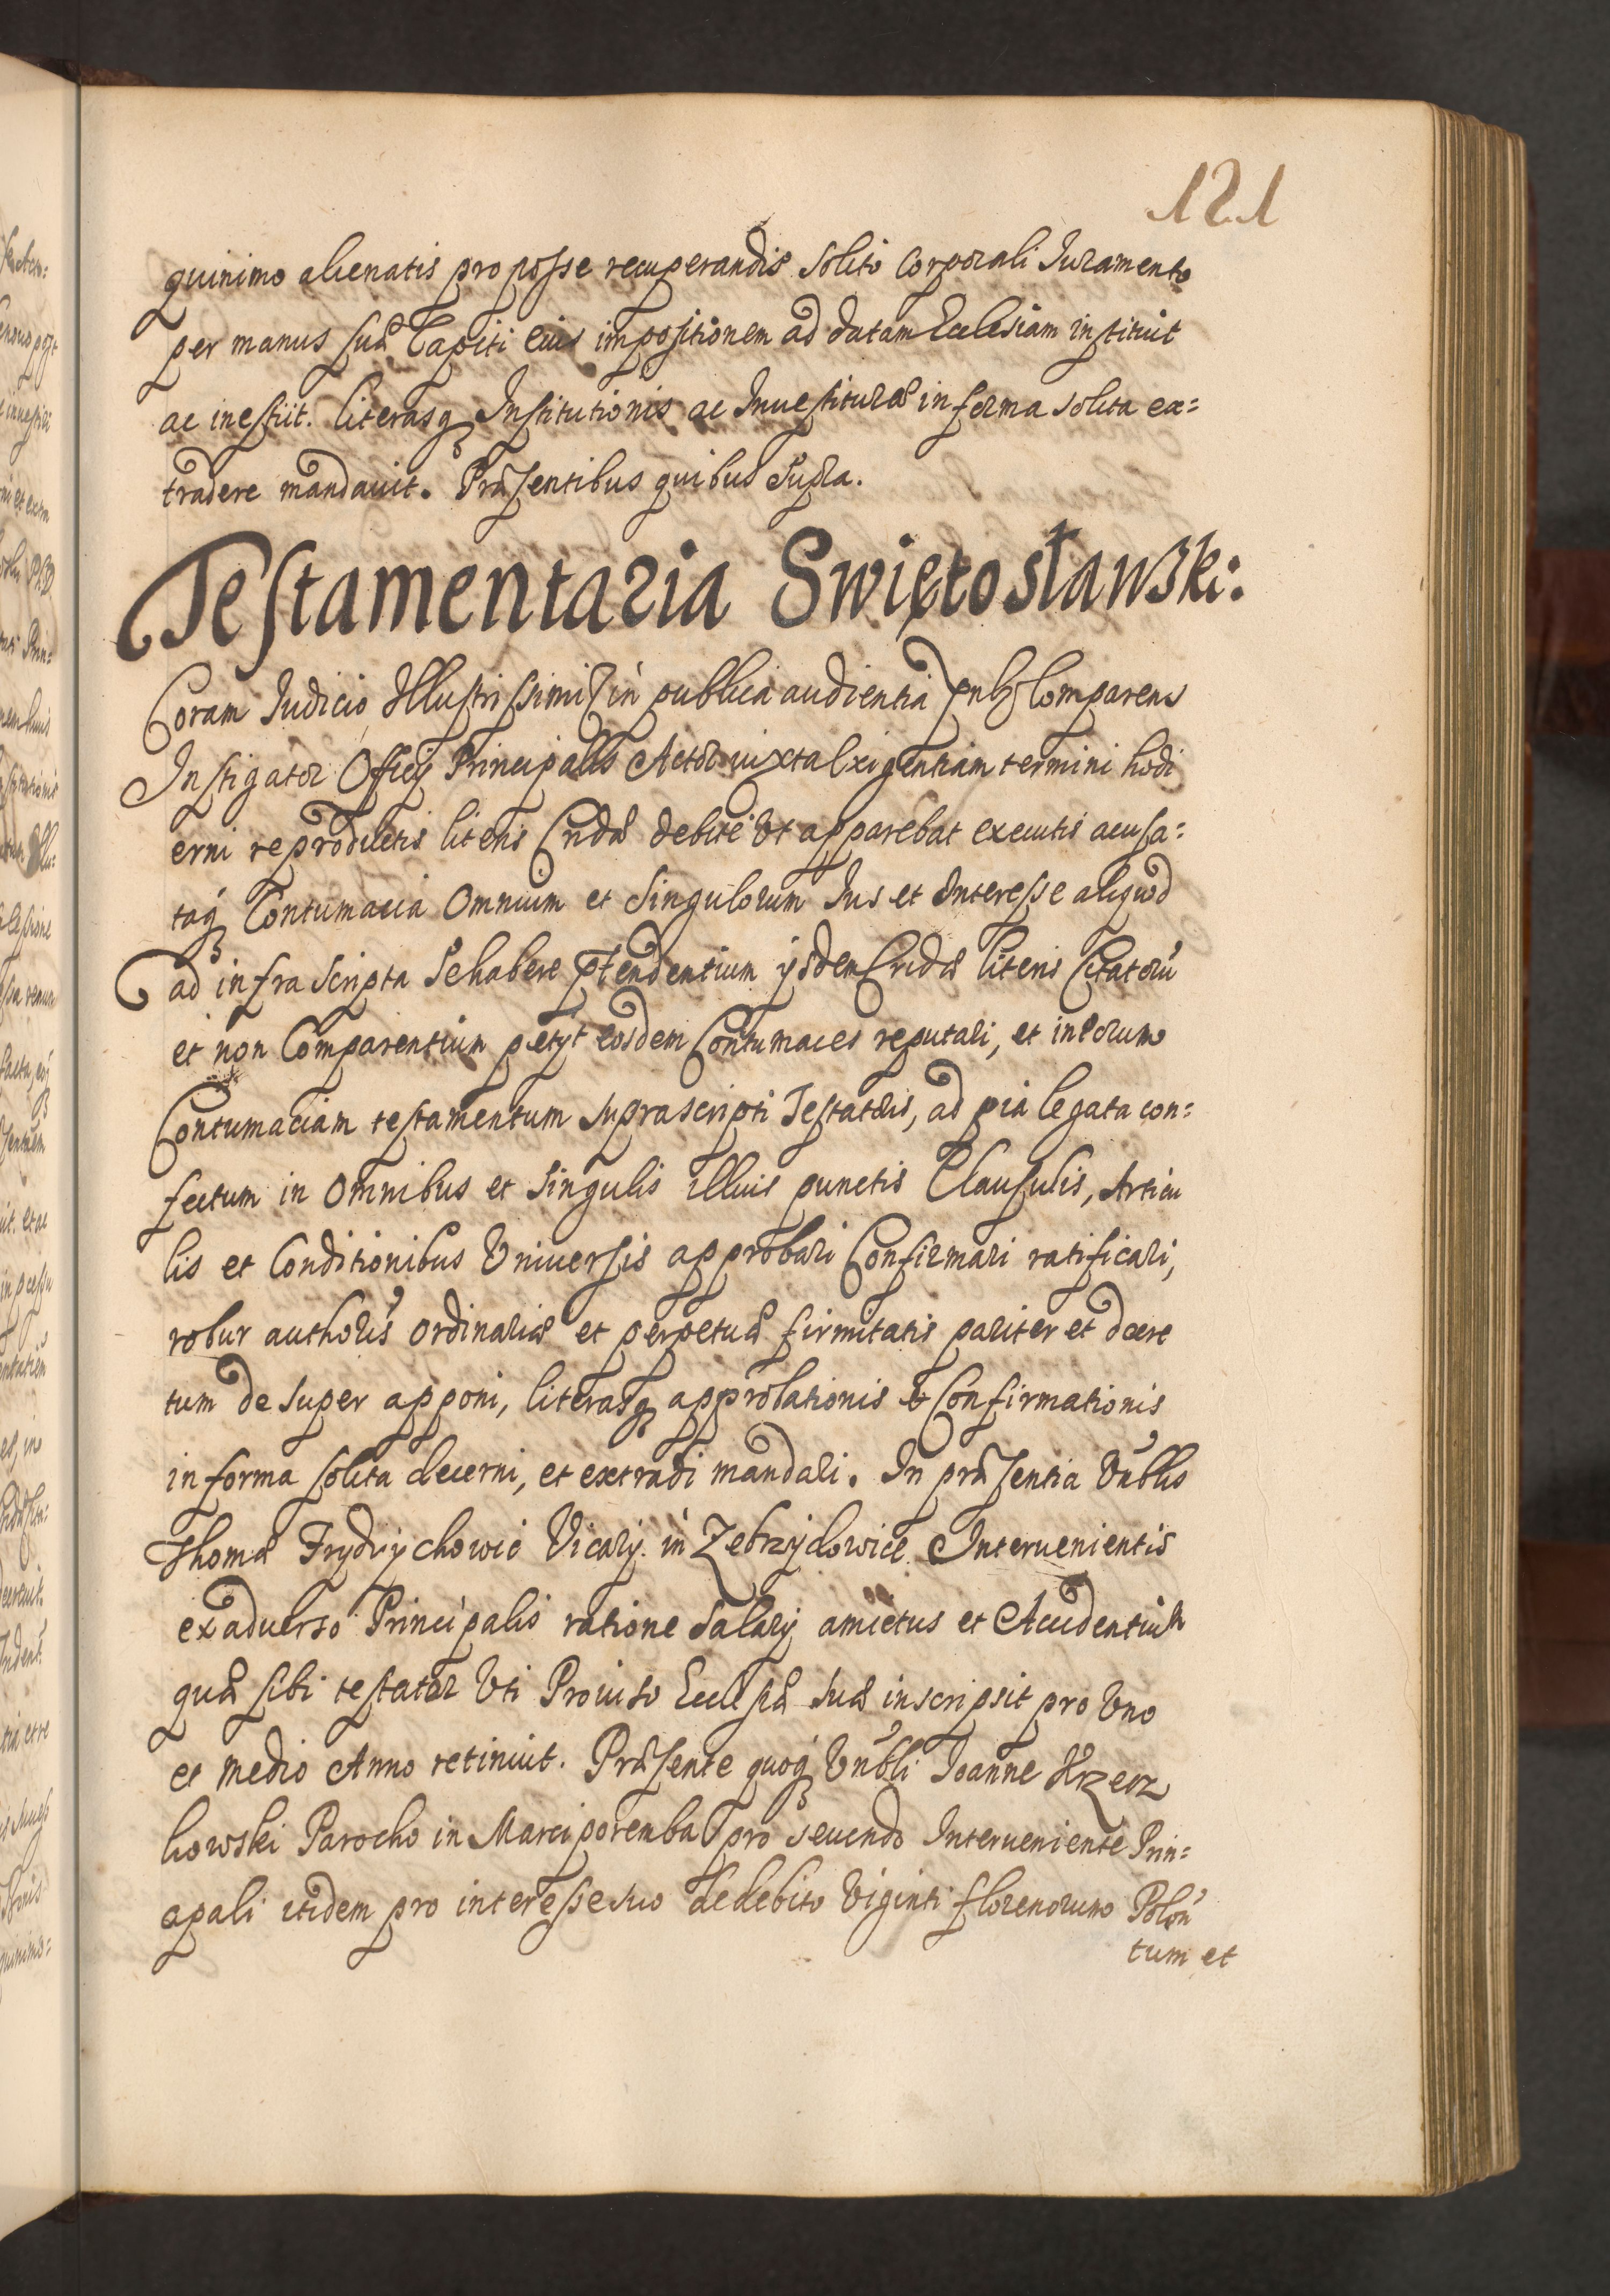 121
quinimo alienatis pro posse recuperandis solito Corporali Iuramento
per manus suæ Capiti eius impositionem ad datam Ecclesiam instituit
ac inestiit. literasq Institutionis ac Inuestituræ in forma solita ex=
tradere mandauit. Præsentibus quibus Supra.
Testamentaria Swiętosławski:
Coram Iudicio Illustrissimi in publica audientia Comparens
Instigator Officij Principalis Actor iuxta Exigentiam termini hodi
erni reproductis literis Cridæ debite Vt apparebat executis acusa=
taq Contumacia Omnium et Singulorum Ius et Interesse aliquod
ad infra scripta Se habere ptendentium ijsdem Cridæ literis Citatorū
et non Comparentium petijt eosdem Contumaces reputari, et in eorum
Contumaciam testamentum suprascripti Testatoris, ad pia legata con=
fectum in Omnibus et Singulis illius punctis Clausulis, Articu
lis et Conditionibus Vniuersis approbari Confirmari ratificari,
robur authoris ordinariæ et perpetuæ firmitatis pariter et decre
tum de super apponi, literasq approbationis et Confirmationis
in forma solita decerni, et extradi mandari. In præsentia Vnblis
Thomæ Frydrychowic Vicarij in Zebrzydowice Interuenientis
ex aduerso Principalis ratione Salarij amictus et Accidentium
quæ sibi testator Vti Prouiso Ecclesiæ suæ inscripsit pro Vno
et medio Anno retinuit. Præsente quoq Vnbli Ioanne Krzecz
kowski Parocho in Marciporemba pro seuendo Interueniente Prin=
cipali itidem pro interesse suo de debito Viginti florenorum Polon
tum et